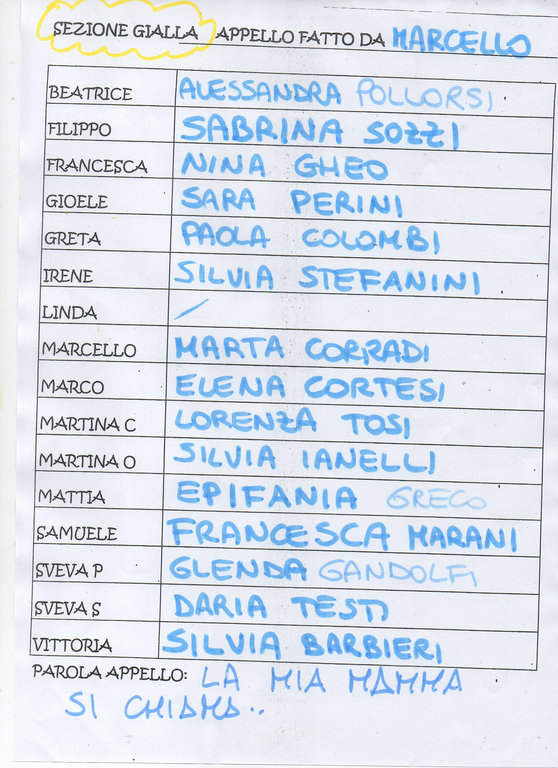 SEZIONE GIALLA APPELLO FATTO DA MARCELLO
BEATRICE ALESSANDRA POLLORSI
FILIPPO SABRINA SOZZI
FRANCESCA NINA GHEO
GIOELE SARA PERINI
GRETA PAOLA COLOMBI
IRENE SILVIA STEFANINI
LINDA /
MARCELLO MARTA CORRADI
MARCO ELENA CORTESI
MARTINA C LORENZA TOSI
MARTINA O SILVIA IANELLI
MATTIA EPIFANIA GRECO
SAMUELE FRANCESCA MARANI
SVEVA P GLENDA GANDOLFI
SVEVA S DARIA TESTI
VITTORIA SILVIA BARBIERI
PAROLA APPELLO: LA MIA MAMMA
SI CHIAMA..